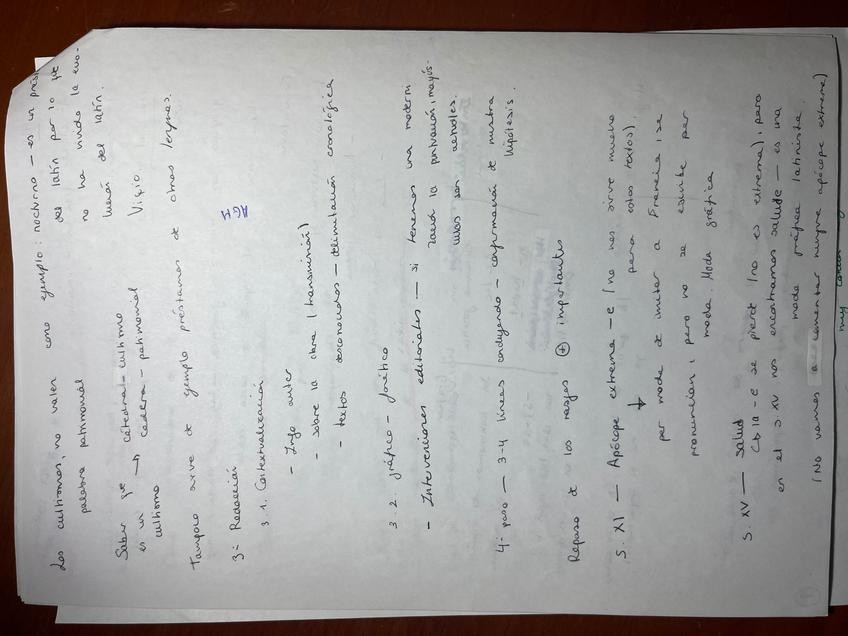 Los cultismos, no valen como ejemplo: nocturno — es un prés
palabra patrimonial del latín por lo que
no ha vivido la evo-
lución del latín.
Saber qué es un cultismo → cátedra - cultismo
cadera - patrimonial
Vicio
Tampoco sirve de ejemplo préstamos de otras lenguas.
3- Redacción
AGI
3.1. Contextualización
- Info autor
- sobre la obra (transmisión)
- textos desconocidos - delimitación cronológica
3.2. gráfico - fonético
- Intervenciones editoriales — si tenemos una moderni
zación la puntuación, mayús-
culas son actuales.
4- paso — 3-4 líneas concluyendo - confirmación de nuestra
hipótesis.
Repaso de los rasgos + importantes
S. XI — Apócope extrema - e (no nos sirve mucho
↓ para estos textos).
por moda de imitar a Francia, se
pronuncian, pero no se escribe por
moda. Moda gráfica
S. XV — Salud
↳ la -e se pierde (no es extrema), pero
en el s XV nos encontramos salude — es una
moda gráfica latinista.
(No vamos a comentar nunca apócope extrema)
muy